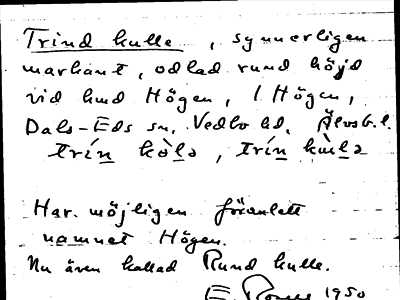 Trind kulle, synnerligen
markant, odlad rund höjd
vid hmd Högen, 1 Högen,
Dals-Eds sn, Vedbo hd, Älvsb. l.
trín kòlə, trín
Har möjligen föranlett
namnet Högen.
Nu även kallad Rund kulle.
E 1950